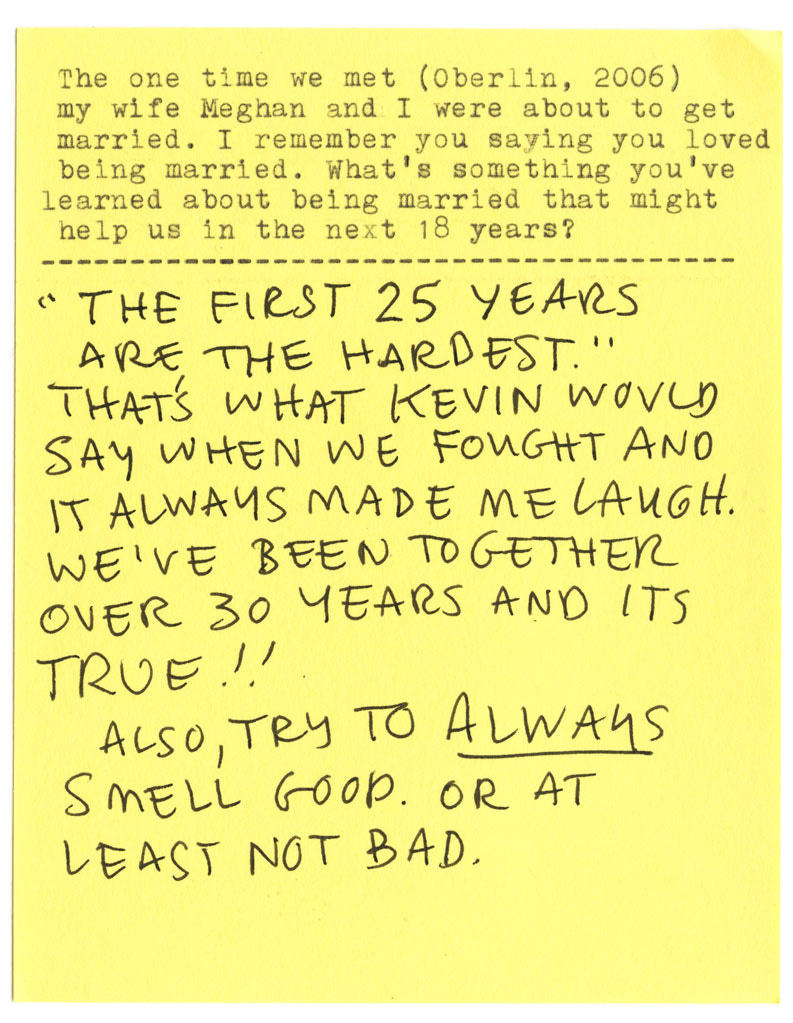 The one time we met (Oberlin, 2006)
my wife Meghan and I were about to get
married. I remember you saying you loved
being married. What's something you've
learned about being married that might
help us in the next 18 years?
"THE FIRST 25 YEARS
ARE THE HARDEST."
THAT'S WHAT KEVIN WOULD
SAY WHEN WE FOUGHT AND
IT ALWAYS MADE ME LAUGH.
WE'VE BEEN TOGETHER
OVER 30 YEARS AND ITS
TRUE!!
ALSO, TRY TO ALWAYS
SMELL GOOD. OR AT
LEAST NOT BAD.